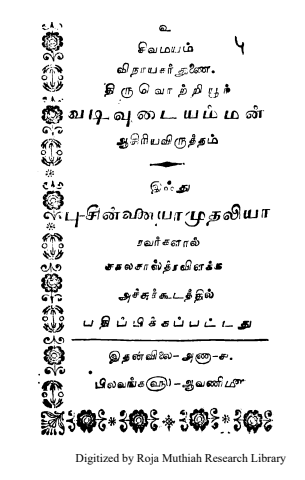 உ
சிவமயம்
விநாயகர் துணை.
திருவொற்றியூர்
வடிவுடையம்மன்
ஆசிரியவிருத்தம்
இஃது
பு-சின்னையாமுதலியா
ரவர்களால்
சகலசாஸ்திரவிளக்க
அச்சுக்கூடத்தில்
பதிப்பிக்கப்பட்டது
இதன்விலை-அணா-
பிலவங்க௵-ஆவணி
Digitized by Roja Muthiah Research Library